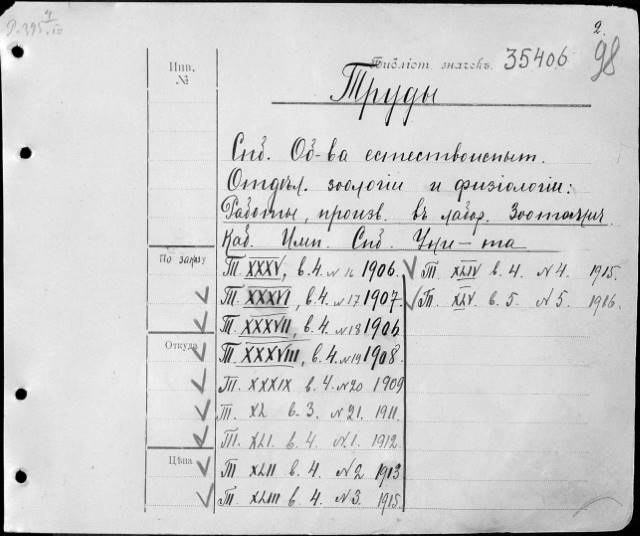 2.
98
Библіот. значекъ. 35406
Инв.
№
Труды
Спб. Об-ва естествоиспыт.
Отдѣл. зоологіи и физіологіи:
Работы, произв. въ лабор. Зоотомич.
Каб. Имп. Спб. Уни-та
По заказу
Т. XXXV, в. 4. № 16 1906.
Т. XXXVI, в. 4. № 17 1907.
Т. XXXVII, в. 4. № 18 1906
Откуда
Т. XXXVIII, в. 4. № 19 1908.
Т. XXXIX в. 4. № 20 1909
Т. XL в. 3. № 21. 1911.
Т. XLI. в. 4. №. 1. 1912
Цѣна
Т. XLII в. 4. № 2 1913
Т. XLIII в. 4. № 3. 1915.
Т. XLIV в. 4. № 4. 1915.
Т. XLV. в. 5. № 5. 1916.